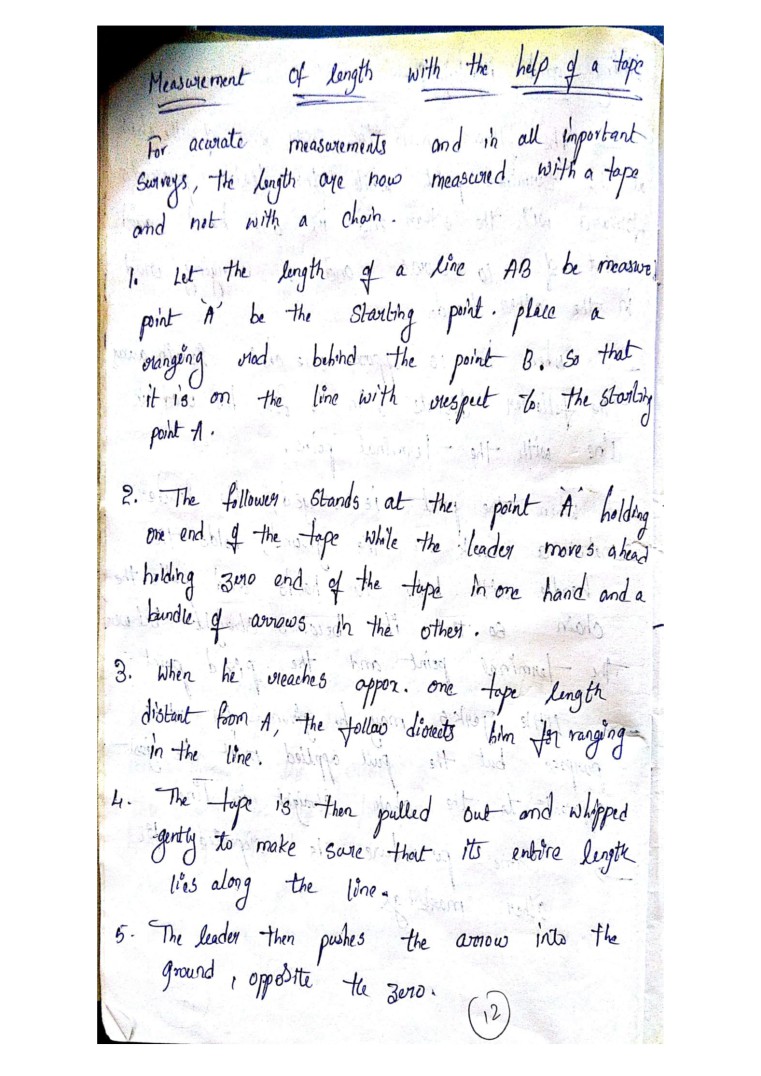 Measurement of length with the help of a tape
For acurate measurements and in all important
Surveys, the length are now measured with a tape
and not with a chain.
1. Let the length of a line AB be measure
point 'A' be the Starting point. place a
ranging rod behind the point B. So that
it is on the line with respect to the starting
point A.
2. The follower stands at the point 'A' holding
one end of the tape while the leader moves ahead
holding zero end of the tape in one hand and a
bundle of arrows in the other.
3. When he reaches appox. one tape length
distant from A, the follao directs him for ranging
in the line.
4. The tape is then pulled out and whipped
gently to make sure that its entire length
lies along the line.
5. The leader then pushes the arrow into the
ground, opposite the zero.
12